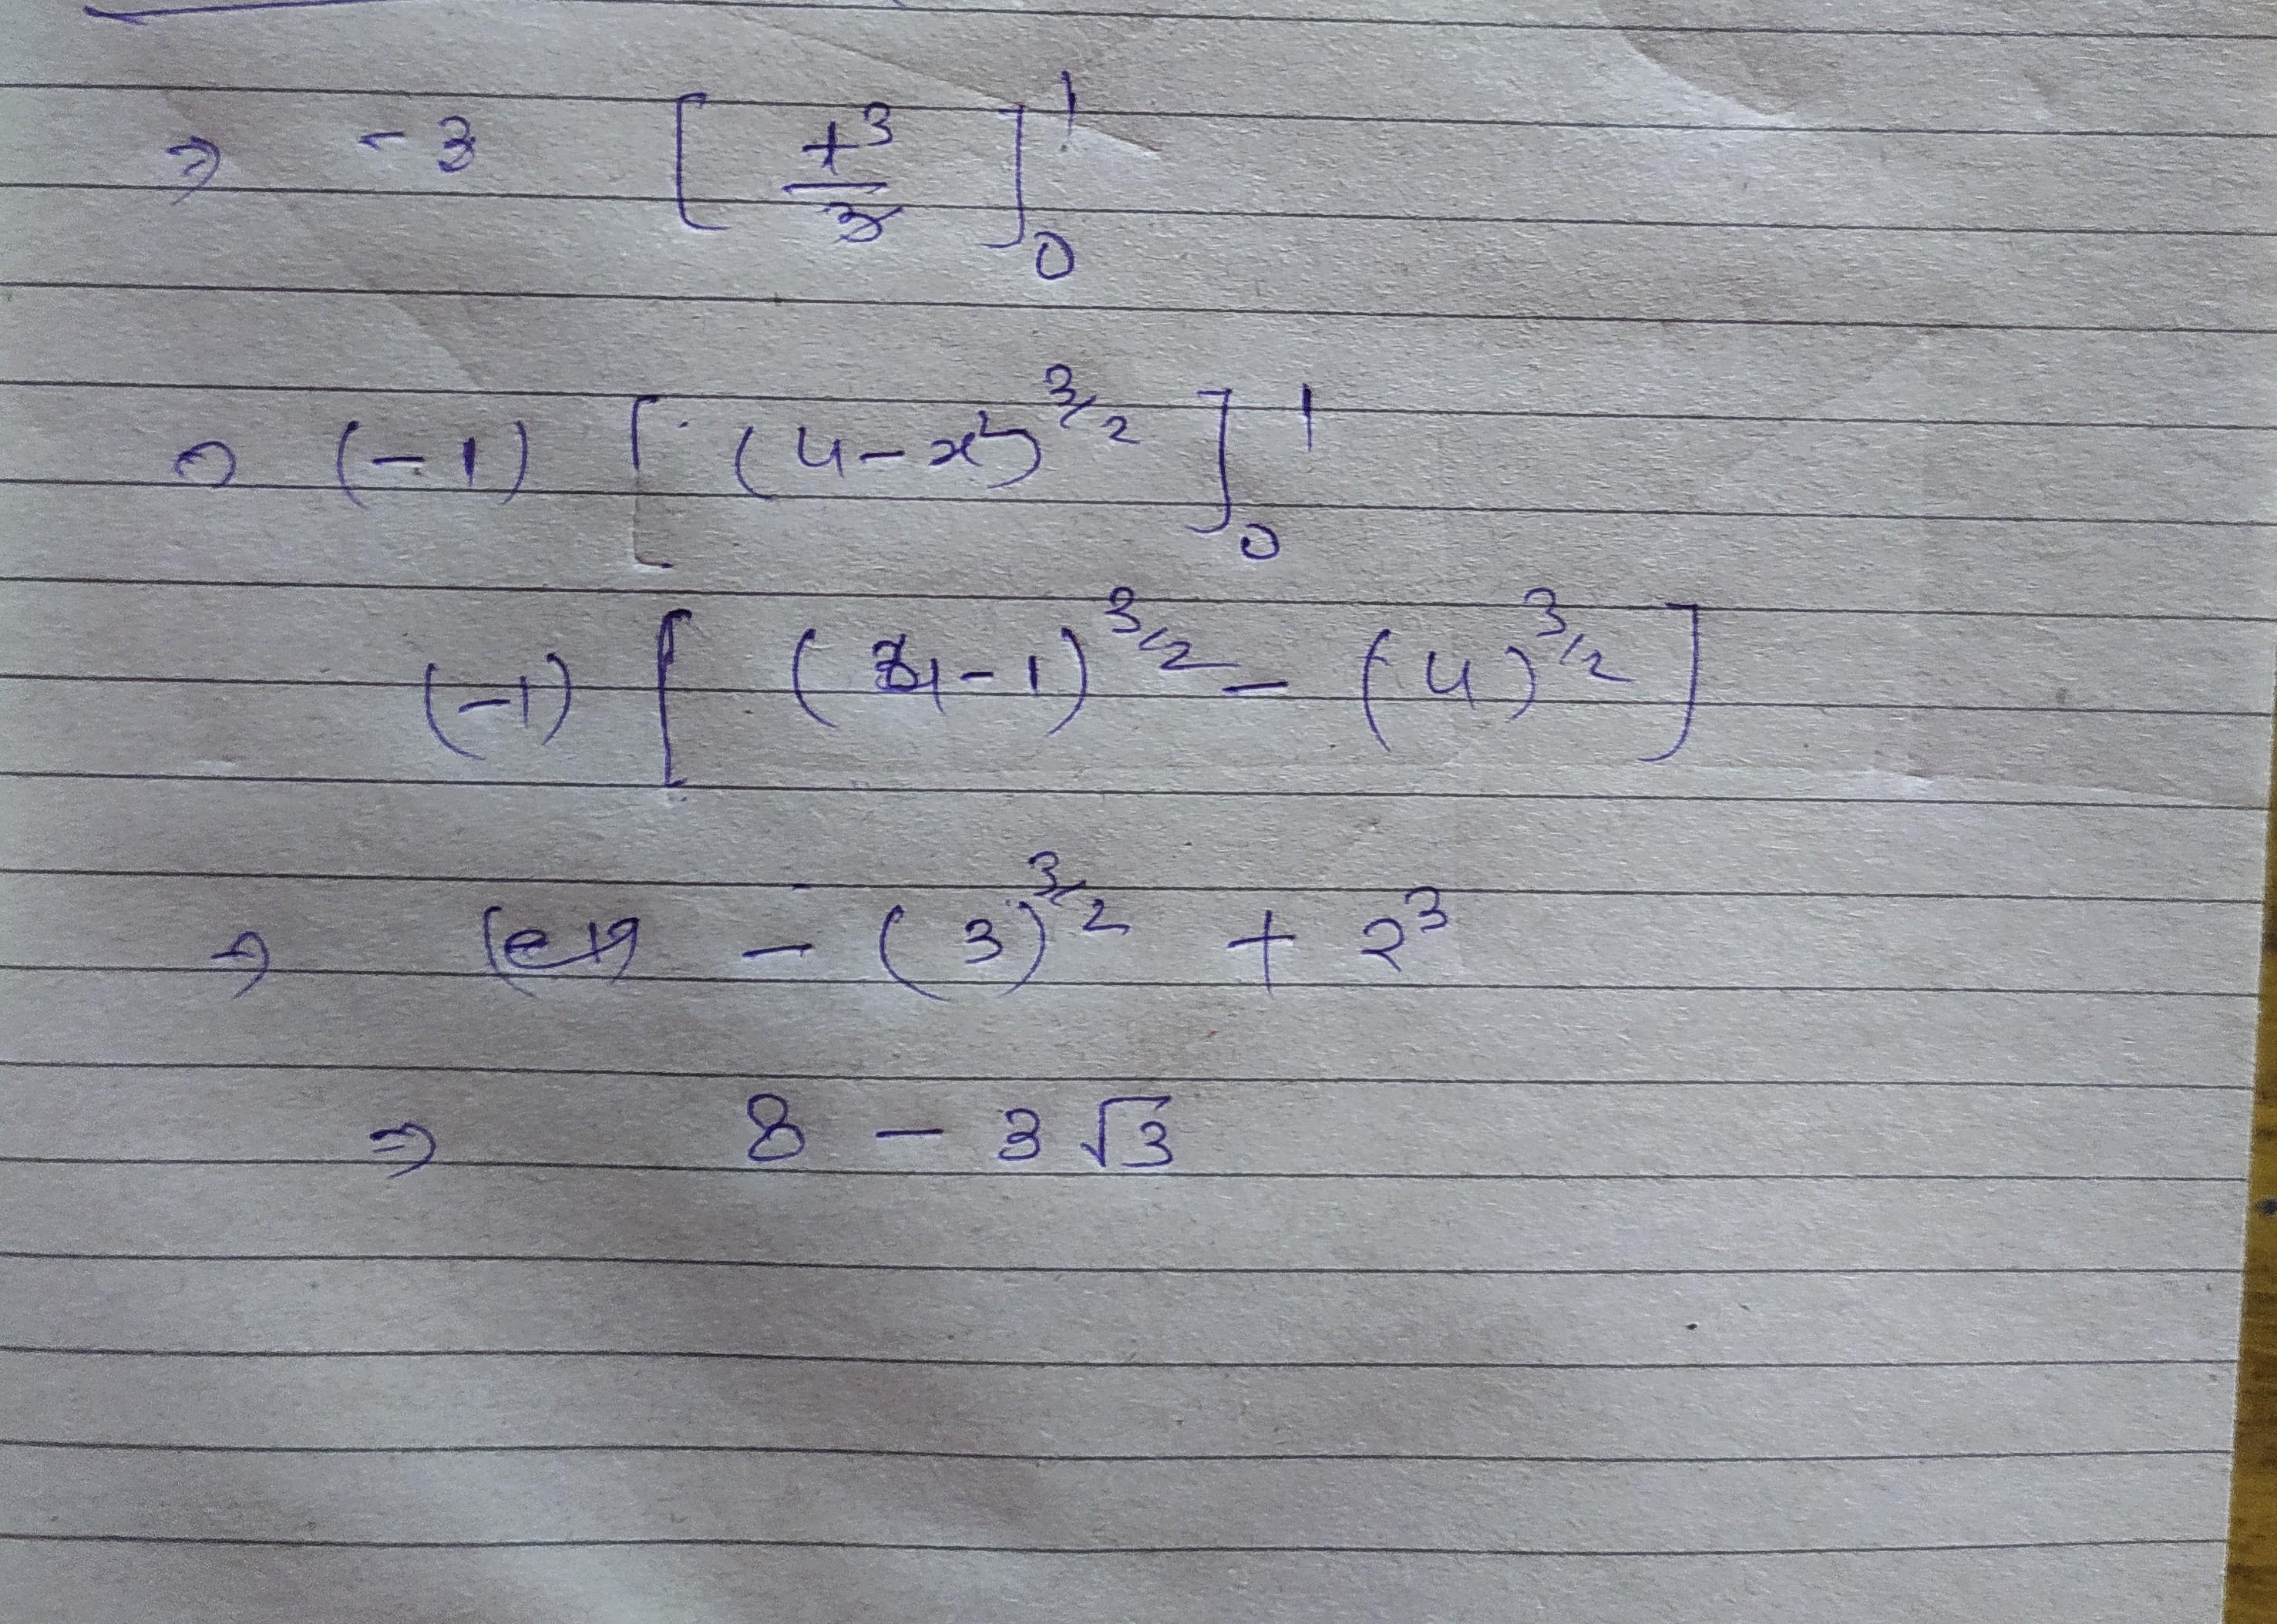 ⇒ -3 [ t³/3 ]₀¹
⇒ (-1) [ (4-x²)^3/2 ]₀¹
(-1) [ (4-1)^3/2 - (4)^3/2 ]
⇒ - (3)^3/2 + 2³
⇒ 8 - 3√3